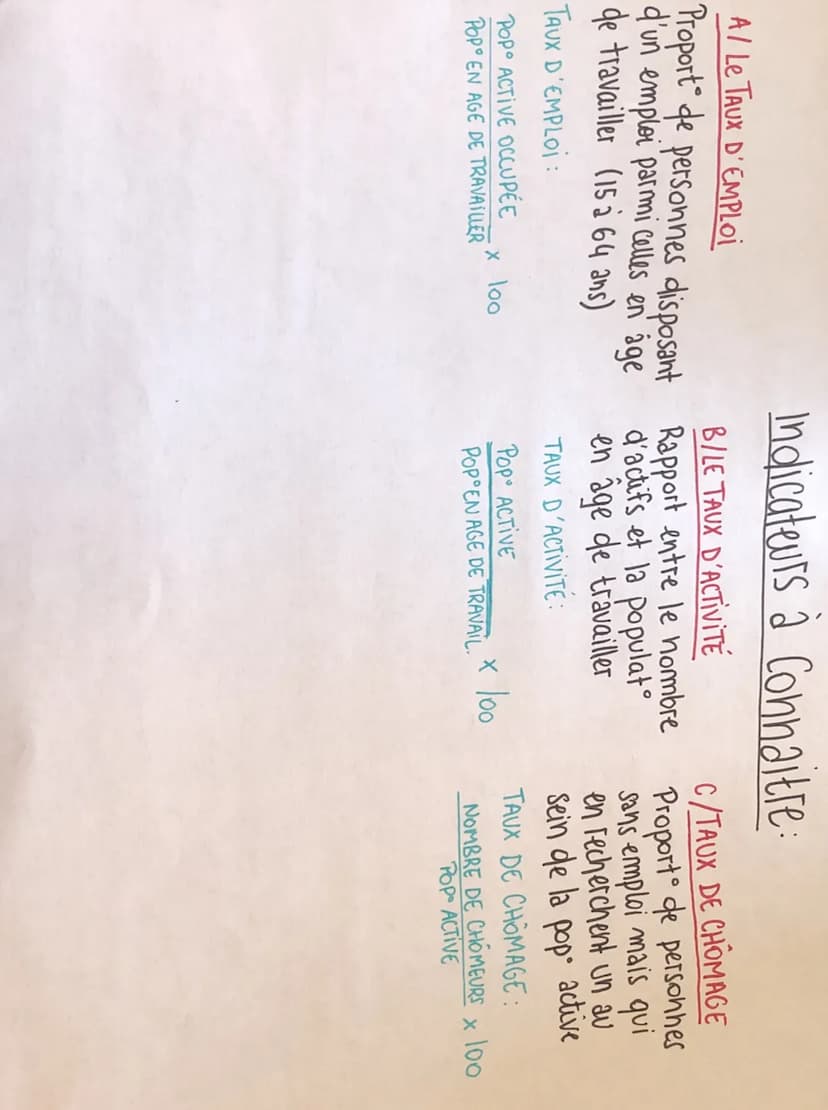 Indicateurs à Connaitre:
A/ LE TAUX D'EMPLOI
Proport° de personnes disposant
d'un emploi parmi celles en âge
de travailler (15 à 64 ans)
TAUX D'EMPLOI :
POP° ACTIVE OCCUPÉE
POP° EN AGE DE TRAVAILLER x 100
B/ LE TAUX D'ACTIVITÉ
Rapport entre le nombre
d'actifs et la populat°
en âge de travailler
TAUX D'ACTIVITÉ:
POP° ACTIVE
POP° EN AGE DE TRAVAIL. x 100
C/ TAUX DE CHÔMAGE
Proport° de personnes
sans emploi mais qui
en recherchent un au
sein de la pop° active
TAUX DE CHÔMAGE :
NOMBRE DE CHÔMEURS x 100
POP° ACTIVE